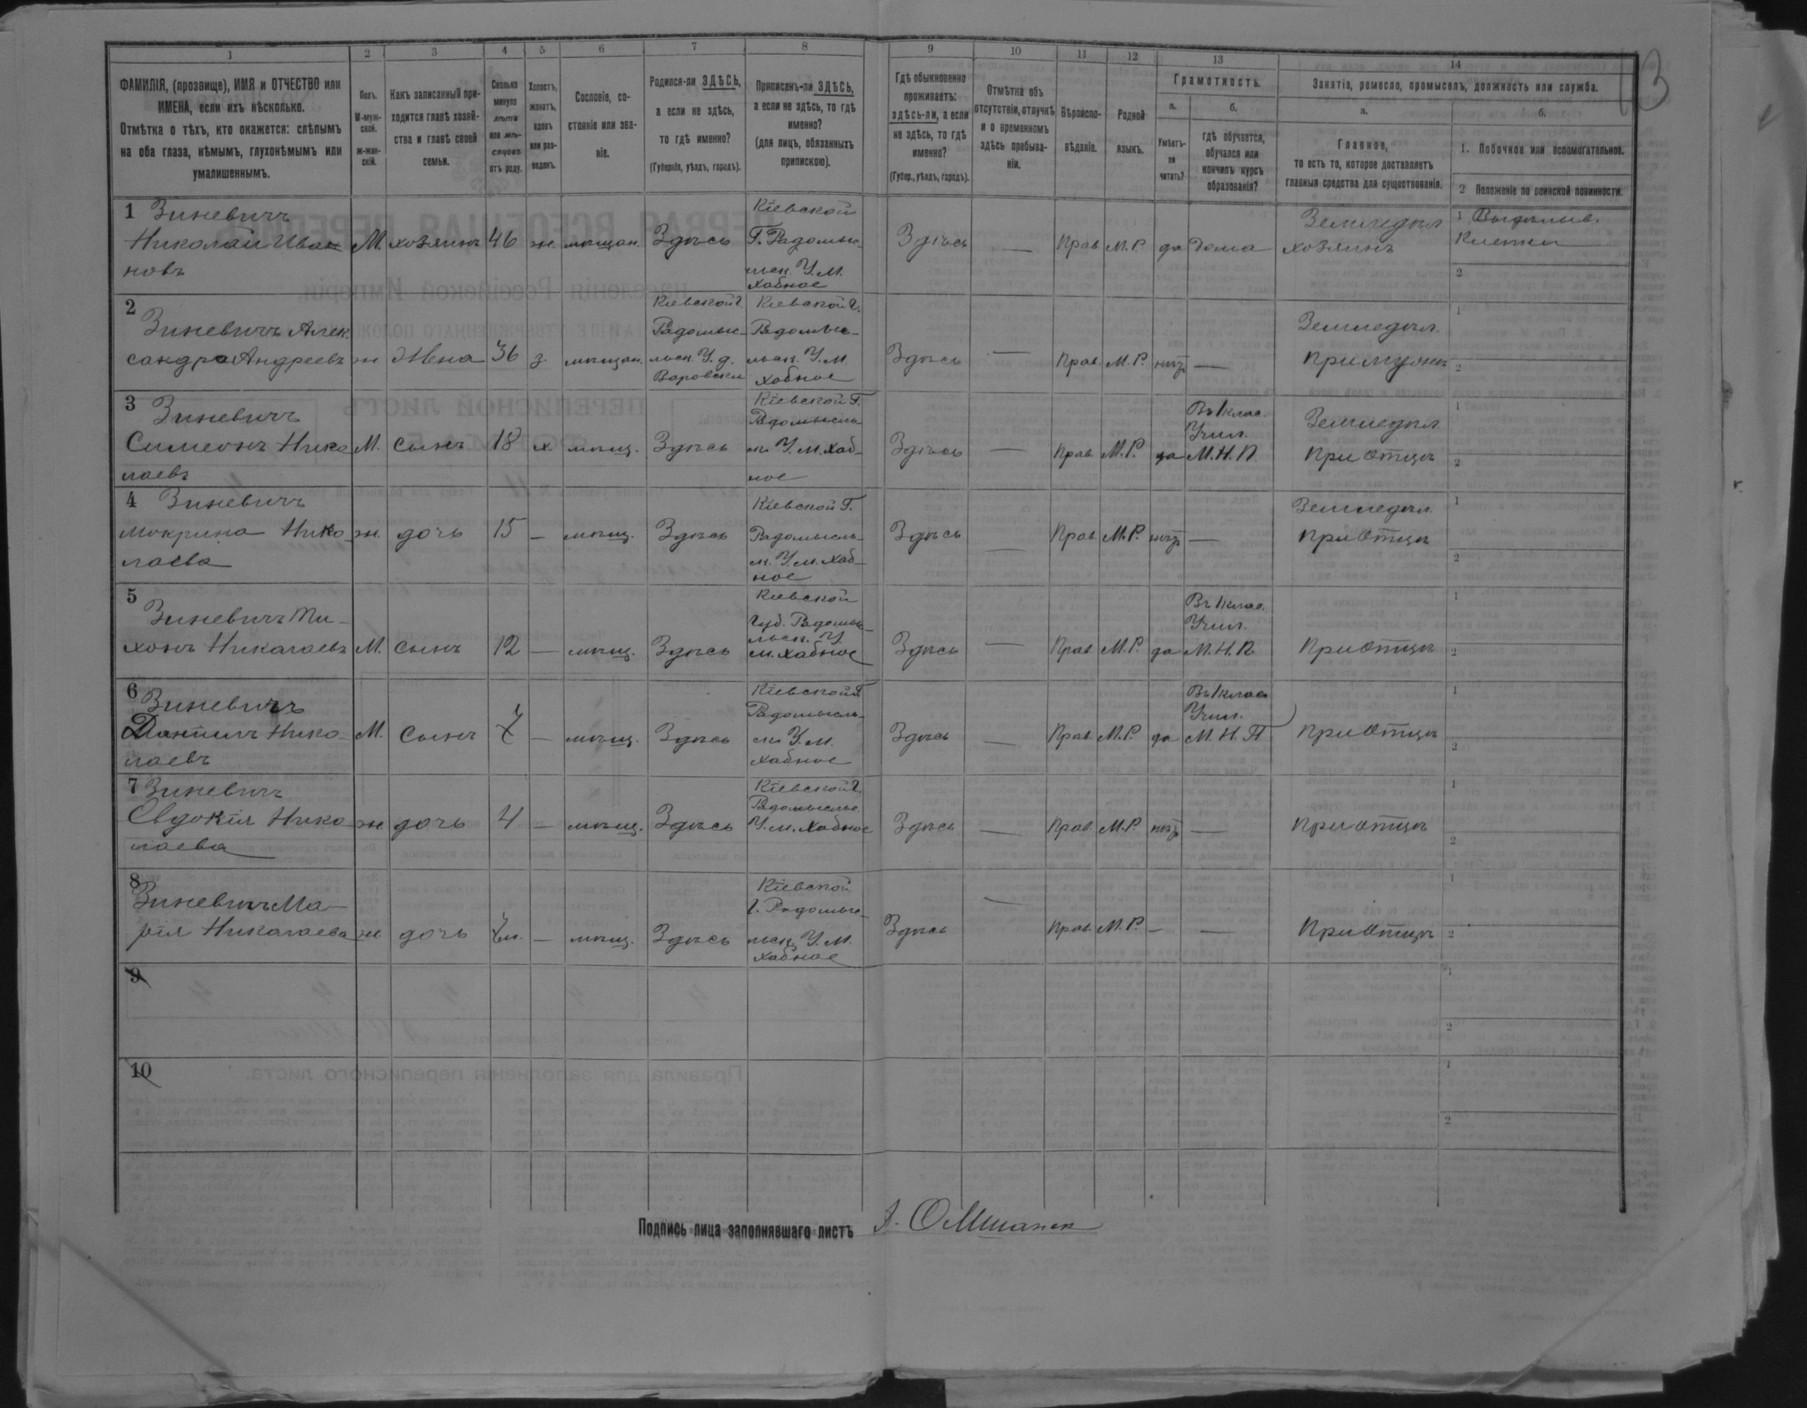 1 2 3 4 5 6 7 8 9 10 11 12 13 14
ФАМИЛІЯ, (прозвище), ИМЯ и ОТЧЕСТВО или
ИМЕНА, если ихъ нѣсколько.
Отмѣтка о тѣхъ, кто окажется: слѣпымъ
на оба глаза, нѣмымъ, глухонѣмымъ или
умалишеннымъ.
Полъ.
М-муж-
ской.
ж-жен-
скій.
Какъ записанный при-
ходится главѣ хозяй-
ства и главѣ своей
семьи.
Сколько
минуло
лѣтъ
или мѣ-
сяцевъ
отъ роду.
Холостъ,
женатъ,
вдовъ
или раз-
веденъ.
Сословіе, со-
стояніе или зва-
ніе.
Родился-ли ЗДѢСЬ,
а если не здѣсь,
то гдѣ именно?
(Губернія, уѣздъ, городъ).
Приписанъ-ли ЗДѢСЬ,
а если не здѣсь, то гдѣ
именно?
(для лицъ, обязанныхъ
припискою).
Гдѣ обыкновенно
проживаетъ:
здѣсь-ли, а если
не здѣсь, то гдѣ
именно?
(Губер., уѣздъ, городъ).
Отмѣтка объ
отсутствіи, отлучкѣ
и о временномъ
здѣсь пребыва-
ніи.
Вѣроиспо-
вѣданіе.
Родной
языкъ.
Грамотность.
а.
Умѣетъ-
ли
читать?
б.
гдѣ обучается,
обучался или
кончилъ курсъ
образованія?
Занятіе, ремесло, промыселъ, должность или служба.
а.
Главное,
то есть то, которое доставляетъ
главныя средства для существованія.
б.
1. Побочное или вспомогательное.
2 Положеніе по воинской повинности.
1 Зиневичъ
Николай Ива
новъ
М хозяинъ 46 ж мѣщан. Здѣсь
Кіевской
Г. Радомыс-
льск. У. м.
Хабное
Здѣсь — Прав М.Р. да Дома
Земледѣл
хозяинъ
1
2
2
Зиневичъ Алек
сандра Андреевъ
ж Жена 36 з. мѣщан.
Кіевской г
Радомыс-
льск. У. д.
Кіевской г.
Радомыс-
льск. У. м
Хабное
Здѣсь — Прав. М.Р. —
Земледѣл.
при мужѣ
1
2
3
Зиневичъ
Симеонъ Нико
лаевъ
М. сынъ 18 х мѣщ. Здѣсь
Кіевской Г.
У. м. Хаб-
ное
Здѣсь — Прав М.Р. да
Въ 1 клас.
Учил.
М.Н.П.
Земледѣл
При Отцѣ
1
2
4 Зиневичъ
Мокрина Нико
лаева
ж. дочь 15 — мѣщ. Здѣсь
Кіевской Г.
Радомысль-
У. м. Хаб-
ное
Здѣсь — Прав М.Р. —
Земледѣл.
При Отцѣ
1
2
5
Зиневичъ Ти-
хонъ Николаевъ
М. сынъ 12 — мѣщ. Здѣсь
Кіевской
Губ. Радомыс-
льск. У.
м. Хабное
Здѣсь — Прав М.Р. да
Въ 1 клас.
Учил.
М.Н.П.
При Отцѣ
1
2
6
Зиневичъ
Даніилъ Нико-
лаевъ
М. сынъ 7 — мѣщ. Здѣсь
Кіевской Г
Радомысль-
У. м.
Хабное
Здѣсь — Прав М.Р. да
Въ 1 клас
Учил.
М.Н.П
При Отцѣ
1
2
7 Зиневичъ
Евдокія Нико
лаева
ж дочь 4 — мѣщ. Здѣсь
Кіевской г.
У. м. Хабное
Здѣсь — Прав. М.Р. —
При Отцѣ
1
2
8
Зиневичъ Ма-
рія Николаева
ж дочь — мѣщ. Здѣсь
Кіевской
г. Радомыс-
льск. У. м.
Хабное
Здѣсь — Прав М.Р. — —
При Отцѣ
1
2
9
1
2
10
1
2
Подпись лица заполнявшаго листъ